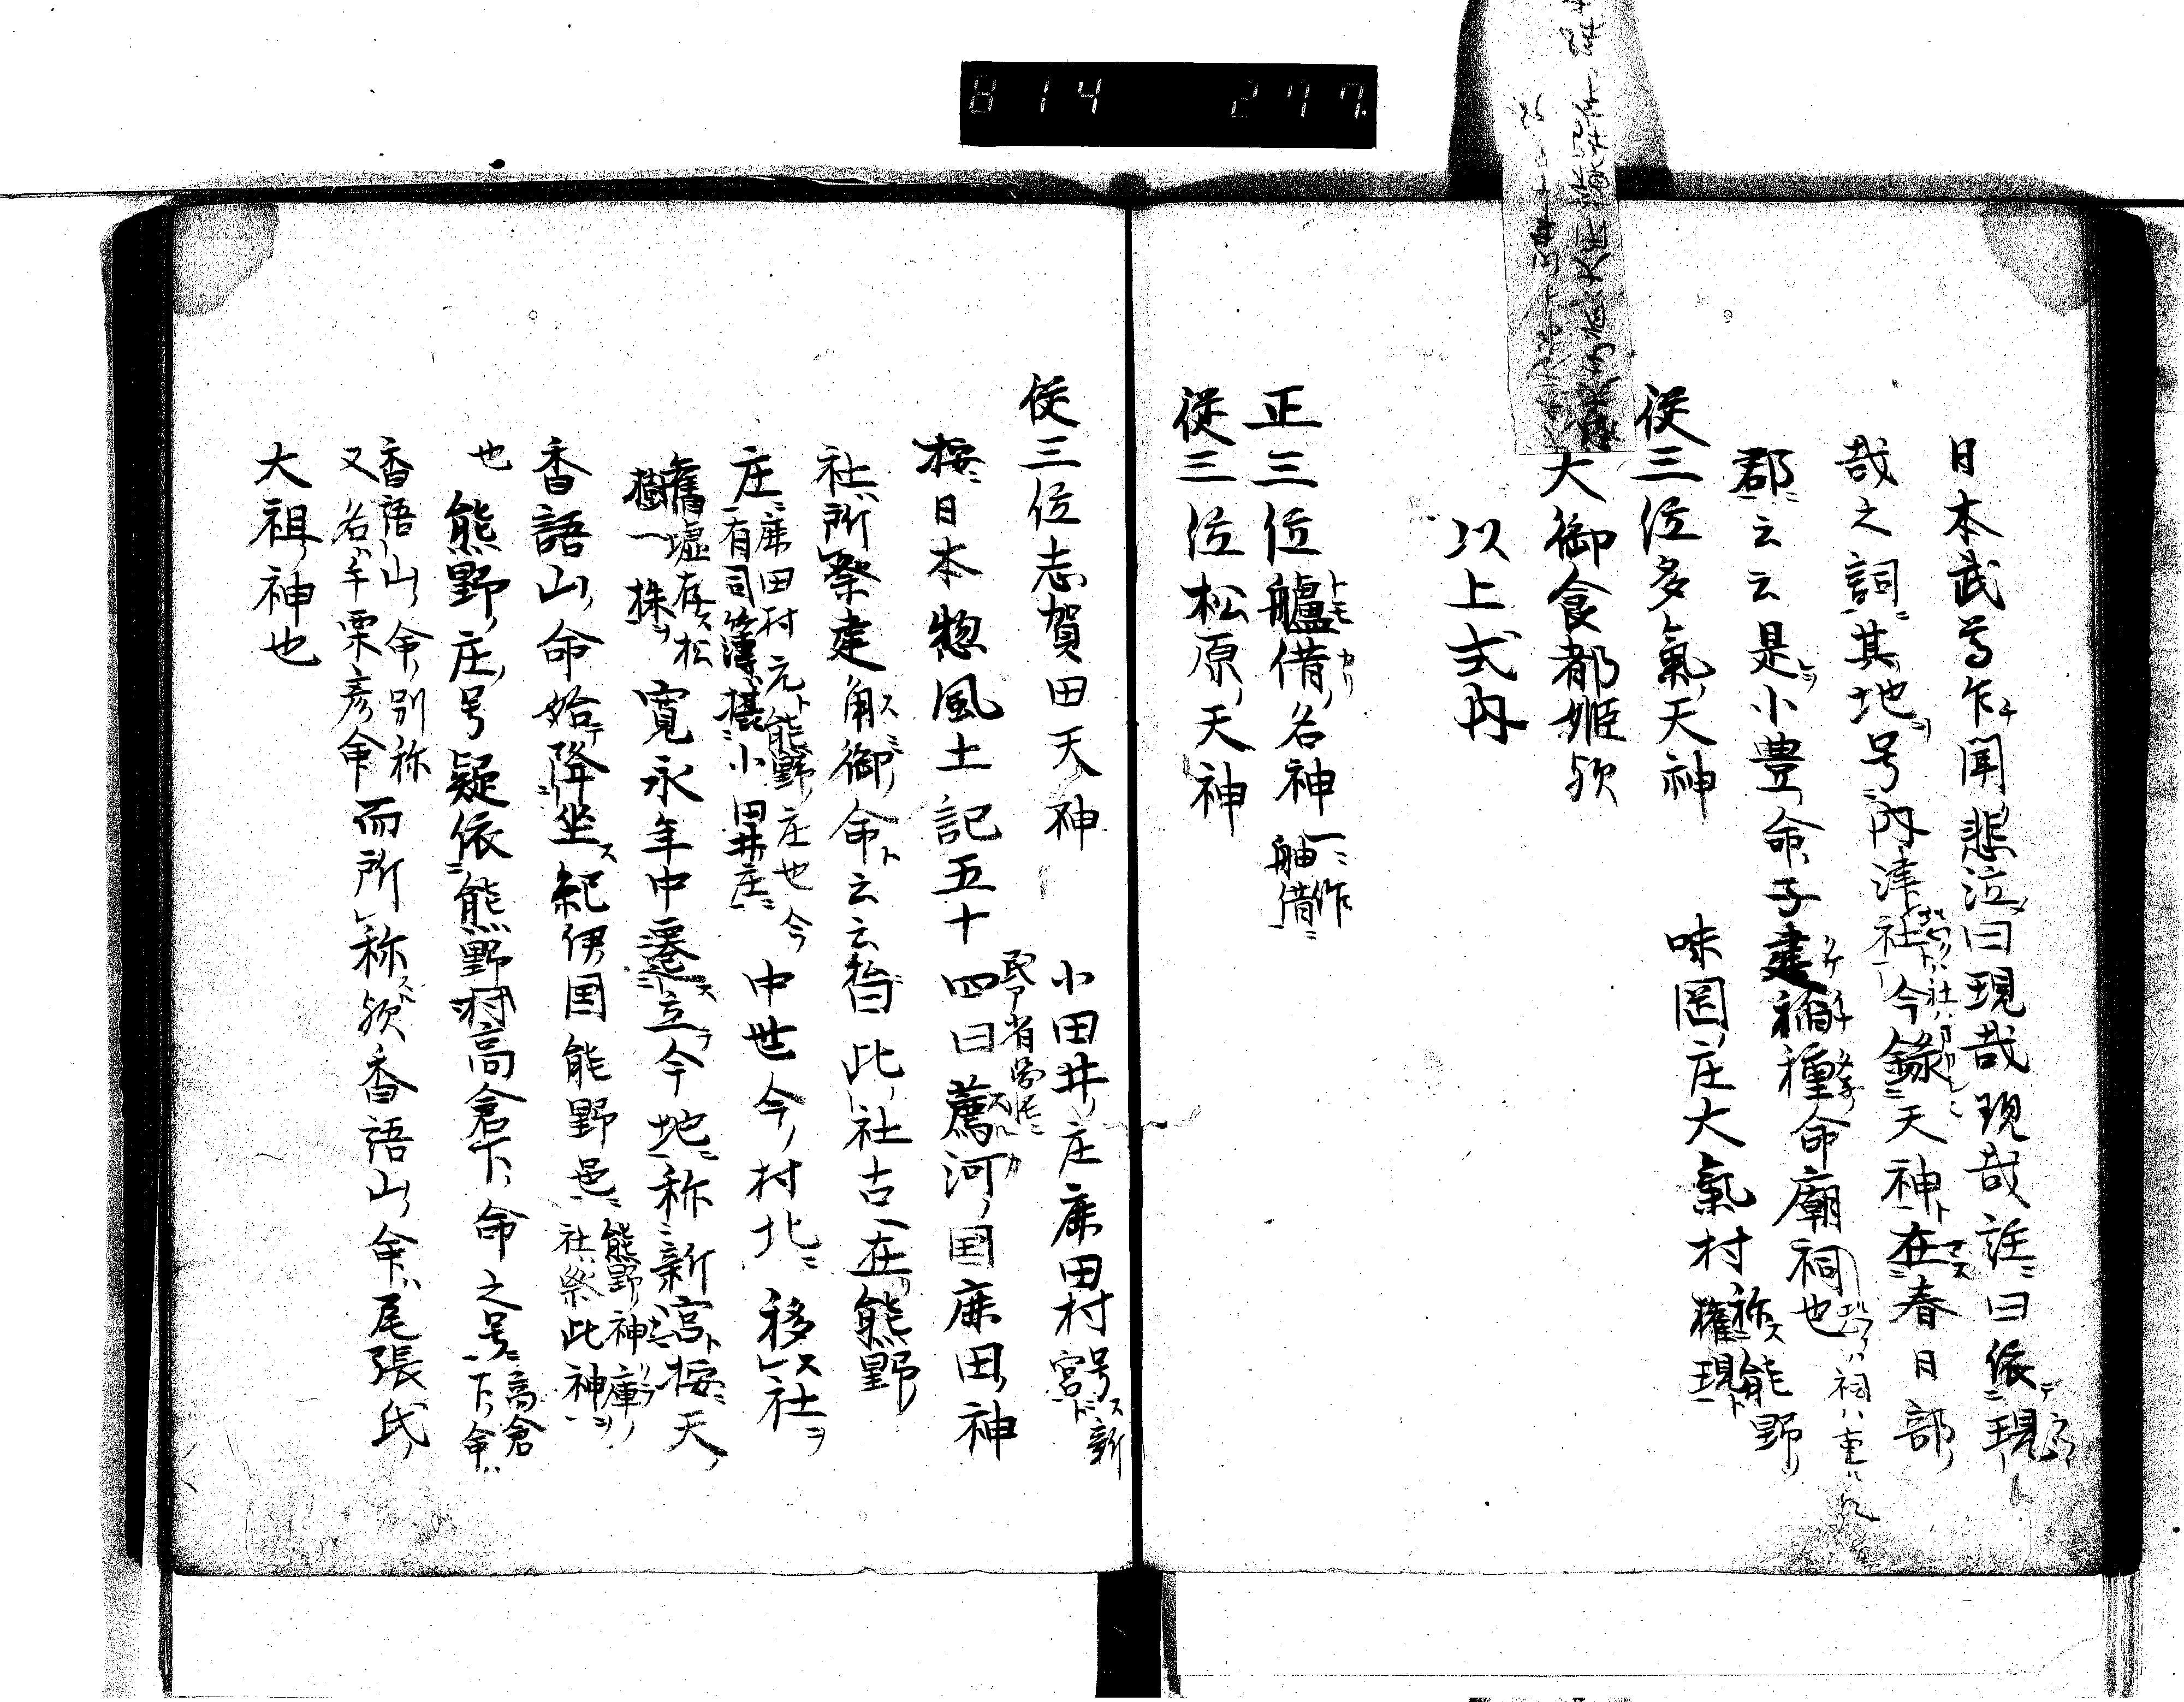 814 277
日本武尊乍聞悲泣曰現哉現哉詫曰依現
哉之詞其地号内津社今錄天神在春日部
郡云云是小豊命子建稲種命廟祠也
従三位多氣天神 味岡庄大氣村 称熊野
権現
大御食都姫欤
以上式内
正三位艫借名神 一作
舳借
従三位松原天神
従三位志賀田天神 小田井庄廉田村 号新
宮
按日本惣風土記五十四曰薦河国廉田神
社所祭建角御命云云皆此社古在熊野
庄 廉田村元熊野庄也今
有司簿揕小田井庄 中世今村北移社
舊墟存松
樹一株 寛永年中遷立今地称新宮按天
香語山命始降坐紀伊国能野邑 熊野神庫
社祭此神
也熊野庄号疑依熊野村高倉下命之号 高倉
下命
香語山命別称
又名手栗彦命 而所称欤香語山命尾張氏
大祖神也